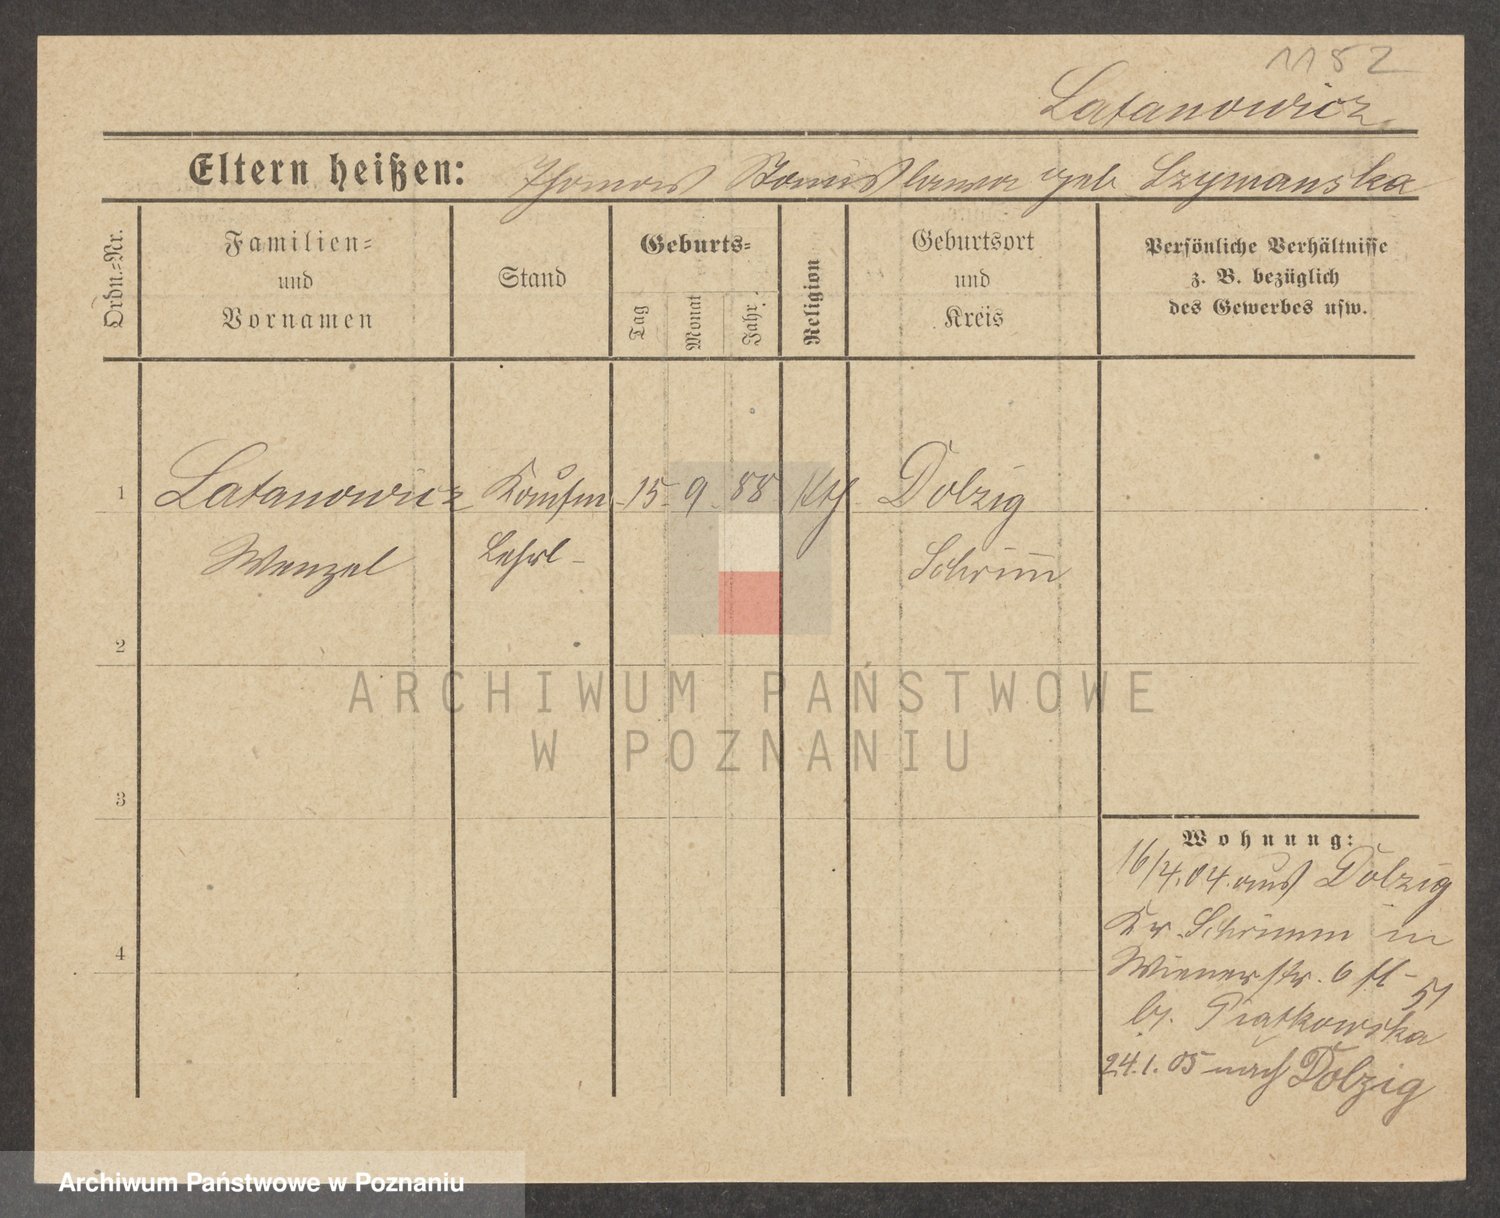 1182
Latanowicz
Eltern heißen: Thomas Stanislawa geb Szymanska
Ordn.-Nr.
Familien-
und
Vornamen
Stand
Geburts-
Tag
Monat
Jahr
Religion
Geburtsort
und
Kreis
Persönliche Verhältnisse
z. B. bezüglich
des Gewerbes usw.
1 Latanowicz Kaufm 15 9 88 Kth Dolzig
Wenzel Lehrl Schrimm
2
3
4
Wohnung:
16/4.04. aus Dolzig
Kr. Schrimm in
Wienerstr. 6
b/. Piątkowska
24.1.05 nach Dolzig
ARCHIWUM PAŃSTWOWE
W POZNANIU
Archiwum Państwowe w Poznaniu